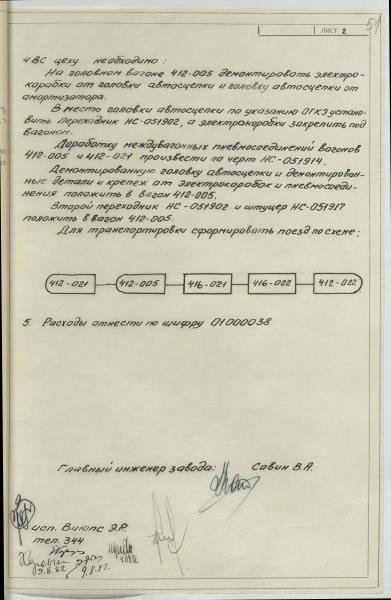 51
ЛИСТ 2
4 ВС цеху необходимо:
На головном вагоне 412-005 демонтировать электро-
коробки от головки автосцепки и головку автосцепки от
амортизатора.
В место головки автосцепки по указанию ОГКЭ устано-
вить Переходник НС-051902, а электрокоробки закрепить под
вагоном.
Доработку междувагонных пневмосоединений вагонов
412-005 и 412-021 произвести по черт НС-051914.
Демонтированную головку автосцепки и демонтирован-
ные детали и крепеж от электрокоробок и пневмосоеди-
нения положить в вагон 412-005.
Второй переходник НС-051902 и штуцер НС-051917
положить в вагон 412-005.
Для транспортировки сформировать поезд по схеме:
412-021 412-005 416-021 416-022 412-022
5. Расходы отнести по шифру 01000038
Главный инженер завода: Савин В.А.
исп. Э.Р.
тел. 344
9.8.82. 9.8.82.